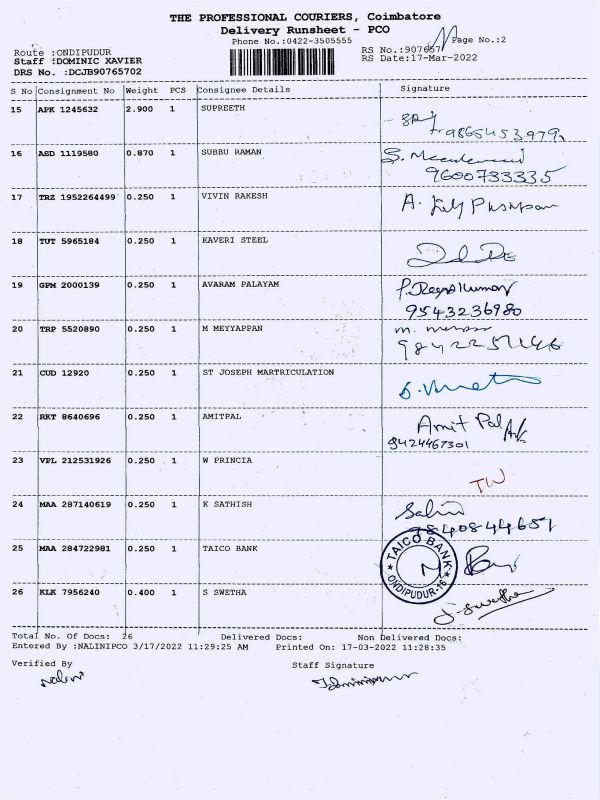 THE PROFESSIONAL COURIERS, Coimbatore
Delivery Runsheet - PCO
Phone No.:0422-3505555
Page No.:2
Route :ONDIPUDUR
RS No.:907657
Staff :DOMINIC XAVIER
RS Date:17-Mar-2022
DRS No. :DCJB90765702
S No Consignment No Weight PCS Consignee Details Signature
15 APK 1245632 2.900 1 SUPREETH
9865453979
16 ASD 1119580 0.870 1 SUBBU RAMAN
9600733335
17 TRZ 1952264499 0.250 1 VIVIN RAKESH A.
18 TUT 5965184 0.250 1 KAVERI STEEL
19 GPM 2000139 0.250 1 AVARAM PALAYAM
9543236980
20 TRP 5520890 0.250 1 M MEYYAPPAN
21 CUD 12920 0.250 1 ST JOSEPH MARTRICULATION
22 RKT 8640696 0.250 1 AMITPAL Amit Pal
9424467301
23 VPL 212531926 0.250 1 W PRINCIA
TW
24 MAA 287140619 0.250 1 K SATHISH
9840844651
25 MAA 284722981 0.250 1 TAICO BANK
TAICO BANK
ONDIPUDUR-16
26 KLK 7956240 0.400 1 S SWETHA
Total No. Of Docs: 26 Delivered Docs: Non Delivered Docs:
Entered By :NALINIPCO 3/17/2022 11:29:25 AM Printed On: 17-03-2022 11:28:35
Verified By Staff Signature
Nalini